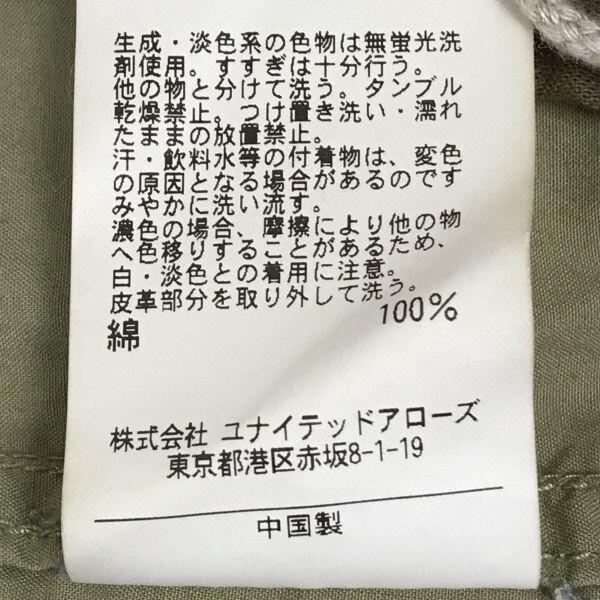 生成・淡色系の色物は無蛍光洗
剤使用。すすぎは十分行う。
他の物と分けて洗う。タンブル
乾燥禁止。つけ置き洗い・濡れ
たままの放置禁止。
汗・飲料水等の付着物は、変色
の原因となる場合があるのです
みやかに洗い流す。
濃色の場合、摩擦により他の物
へ色移りすることがあるため、
白・淡色との着用に注意。
皮革部分を取り外して洗う。
100%
綿
株式会社 ユナイテッドアローズ
東京都港区赤坂8-1-19
中国製